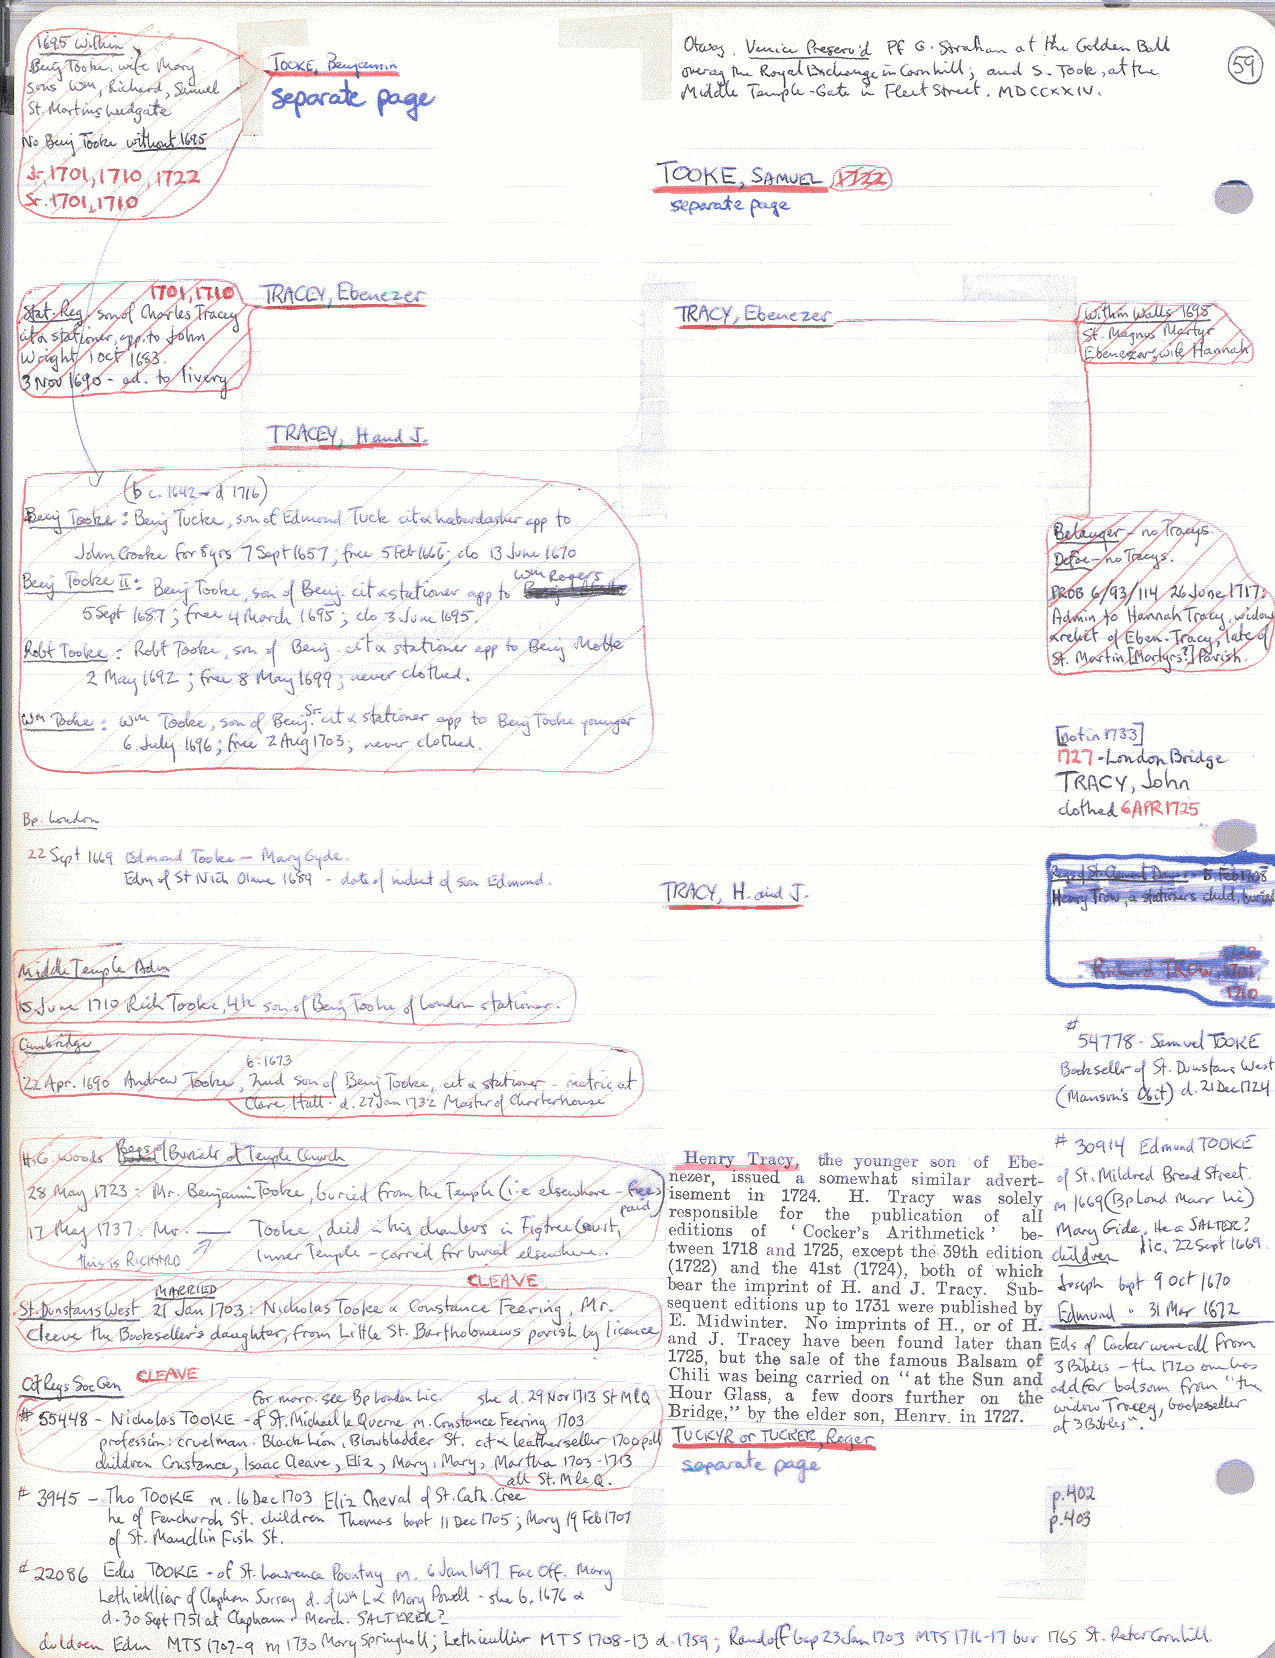 1695 Within
Benj Tooke, wife Mary
sons Wm, Richard, Samuel
St. Martins Ludgate
No Benj Tooke without 1695
Jr. 1701, 1710, 1722
Sr. 1701, 1710
TOOKE, Benjamin
separate page
Otway. Venice Preserv'd Pf G. Strahan at the Golden Ball
overag the Royal Exchange in Cornhill; and S. Took, at the
Middle Temple-Gate in Fleet Street. MDCCXXIV.
59
TOOKE, SAMUEL 1722
separate page
1701, 1710
Stat. Reg. son of Charles Tracey
cit & stationer, app. to John
Wright 1 Oct 1683.
3 Nov 1690 - ad. to livery
TRACEY, Ebenezer
TRACEY, H and J.
TRACY, Ebenezer
Within Walls 1695
St. Magnus Martyr
Ebenezer, wife Hannah
(b c. 1642 - d 1716)
Benj Tooke: Benj Tucke, son of Edmond Tuck cit & haberdasher app to
John Crooke for 8 yrs 7 Sept 1657; free 5 Feb 1666; clo 13 June 1670
Benj Tooke II: Benj Tooke, son of Benj. cit & stationer app to Wm Rogers
5 Sept 1687; free 4 March 1695; clo 3 June 1695.
Robt Tooke: Robt Tooke, son of Benj. cit & stationer app to Benj Motte
2 May 1692; free 8 May 1699; never clothed.
Wm Tooke: Wm Tooke, son of Benj. Sr. cit & stationer app to Benj Tooke younger
6 July 1696; free 2 Aug 1703; never clothed.
Belanger - no Tracys.
Defoe - no Tracys.
PROB 6/93/114 26 June 1717:
Admin to Hannah Tracy, widow
& relict of Eben. Tracy, late of
St. Martin [Martyrs?] Parish.
[not in 1733]
1727 - London Bridge
TRACY, John
clothed 6 APR 1725
Bp. London
22 Sept 1669 Edmond Tooke - Mary Gyde.
Edm of St Nich Olave 1689 - date of indent of son Edmund.
TRACY, H. and J.
Regs of St. Clement Danes - 5 Feb 1708
Henry Trow, a stationers child, buried
Richard TROW, 1722
1701,
1710
Middle Temple Adm
15 June 1710 Rich Tooke, 4th son of Benj Tooke of London stationer.
Cambridge
b. 1673
22 Apr. 1690 Andrew Tooke, 2nd son of Benj Tooke, cit & stationer - matric at
Clare Hall. d. 27 Jan 1732 Master of Charterhouse
#54778 - Samuel TOOKE
Bookseller of St. Dunstans West
(Manson's Obit) d. 21 Dec 1724
H.G. Woods Regs of Burials at Temple Church
28 May 1723: Mr. Benjamin Tooke, buried from the Temple (i.e elsewhere - fees
paid
17 May 1737: Mr. —— Tooke, died in his chambers in Figtree Court,
this is RICHARD Inner Temple - carried for burial elsewhere.
CLEAVE
MARRIED
St. Dunstans West 21 Jan 1703: Nicholas Tooke & Constance Feering, Mr.
Cleeve the Bookseller's daughter, from Little St. Bartholomews parish by licence
Henry Tracy, the younger son of Ebe-
nezer, issued a somewhat similar advert-
isement in 1724. H. Tracy was solely
responsible for the publication of all
editions of 'Cocker's Arithmetick' be-
tween 1718 and 1725, except the 39th edition
(1722) and the 41st (1724), both of which
bear the imprint of H. and J. Tracy. Sub-
sequent editions up to 1731 were published by
E. Midwinter. No imprints of H., or of H.
and J. Tracey have been found later than
1725, but the sale of the famous Balsam of
Chili was being carried on "at the Sun and
Hour Glass, a few doors further on the
Bridge," by the elder son, Henry, in 1727.
#30914 Edmund TOOKE
of St. Mildred Bread Street.
m 1669 (Bp Lond Marr Lic)
Mary Gide, He a SALTER?
children lic. 22 Sept 1669.
Joseph bapt 9 Oct 1670
Edmund " 31 Mar 1672
Eds of Cocker were all from
3 Bibles - the 1720 one has
add for balsom from "the
widow Tracey, bookseller
at 3 Bibles".
CLEAVE
Cat Regs Soc Gen
for marr. see Bp London Lic. she d. 29 Nov 1713 St M l Q
#55448 - Nicholas TOOKE - of St. Michael le Querne m. Constance Feering 1703
profession: cruelman. Black Lion, Blowbladder St. cit & leatherseller 1700 poll
children Constance, Isaac Cleave, Eliz, Mary, Mary, Martha 1703-1713
all St. M le Q.
TUCKYR or TUCKER, Roger
separate page
# 3945 - Tho TOOKE m. 16 Dec 1703 Eliz Cheval of St. Cath. Cree
he of Fenchurch St. children Thomas bapt 11 Dec 1705; Mary 19 Feb 1707
of St. Maudlin Fish St.
p. 402
p. 403
# 22086 Edw TOOKE - of St. Lawrence Pountny m. 6 Jan 1697 Fac Off. Mary
Lethieullier of Clapham Surrey d. of Wm L & Mary Powell - she b. 1676 &
d. 30 Sept 1751 at Clapham. Merch. SALTERER?
children Edw MTS 1707-9 m 1730 Mary Springhall; Lethieullier MTS 1708-13 d. 1759; Randolf bap 23 Jan 1703 MTS 1716-17 bur 1765 St. Peter Cornhill.